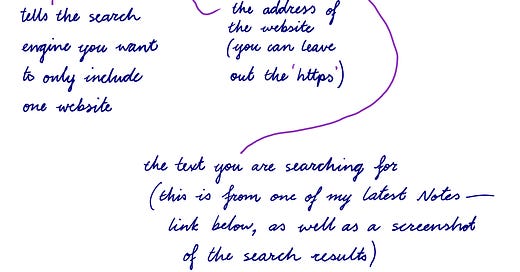 tells the search
engine you want
to only include
one website
the address of
the website
(you can leave
out the 'https')
the text you are searching for
(this is from one of my latest Notes —
link below, as well as a screenshot
of the search results)